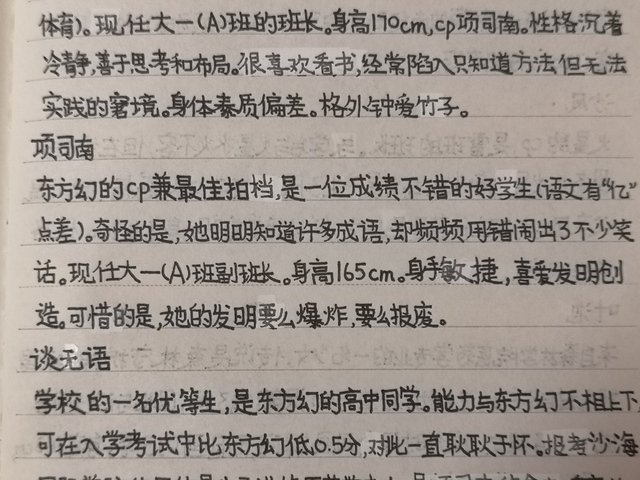 体育)。现任大一(A)班的班长。身高170cm,cp项司南。性格沉着
冷静,善于思考和布局。很喜欢看书,经常陷入只知道方法但无法
实践的窘境。身体素质偏差。格外钟爱竹子。
项司南
东方幻的cp兼最佳拍档,是一位成绩不错的好学生(语文有“亿”
点差)。奇怪的是,她明明知道许多成语,却频频用错闹出了不少笑
话。现任大一(A)班副班长。身高165cm。身手敏捷,喜爱发明创
造。可惜的是,她的发明要么爆炸,要么报废。
谈无语
学校的一名优等生,是东方幻的高中同学。能力与东方幻不相上下,
可在入学考试中比东方幻低0.5分,对此一直耿耿于怀。报考沙海